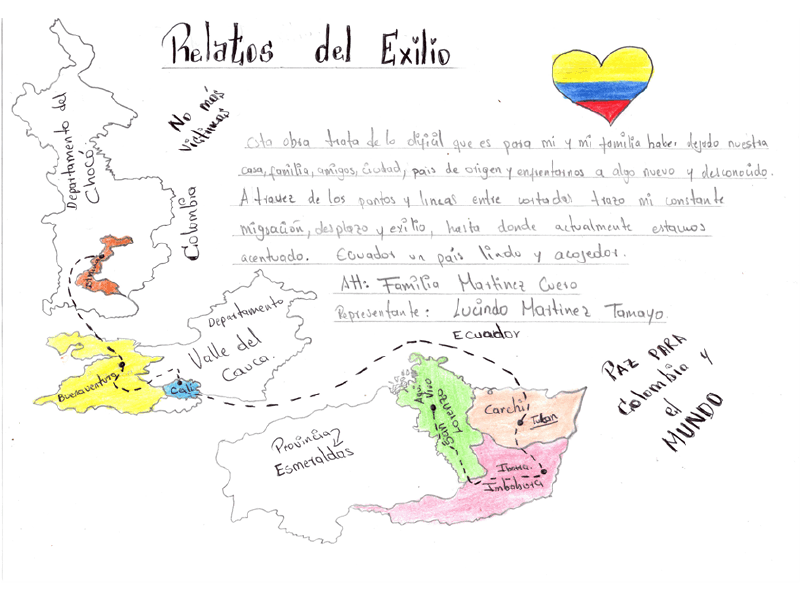 Relatos del Exilio
No más
victimas
Departamento del
Chocó
Colombia
Esta obra trata de lo dificial que es para mi y mi familia haber dejado nuestra
casa, familia, amigos, ciudad, pais de origen y enfrentarnos a algo nuevo y desconocido.
A travez de los puntos y lineas entre cortadas trazo mi constante
migración, desplazo y exilio, hasta donde actualmente estamos
acentuado. Ecuador un país lindo y acojedor.
Att: Familia Martinez Cuero
Representante: Lucindo Martinez Tamayo.
Departamento
Valle del
Cauca.
Buenaventura
Cali
Ecuador
Aqui
Vivo
San
Lorenzo
Carchi
Tulcan
Ibarra
Imbabura
Provincia
Esmeraldas
PAZ PARA
Colombia y
el
MUNDO